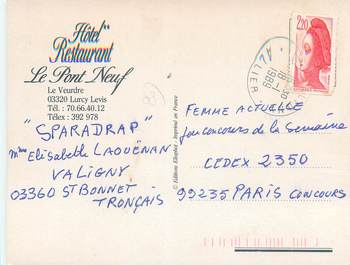 Hôtel**
Restaurant
Le Pont Neuf
Le Veurdre
03320 Lurcy Levis
Tél. : 70.66.40.12
Télex : 392 978
"SPARADRAP"
Mme Elisabeth LAOUËNAN
VALIGNY
03360 ST BONNET
TRONÇAIS
© Editions Elfephot - Imprimé en France
2,20
ALLIER
1989
FEMME ACTUELLE
Jeu concours de la Semaine
CEDEX 2350
99235 PARIS CONCOURS